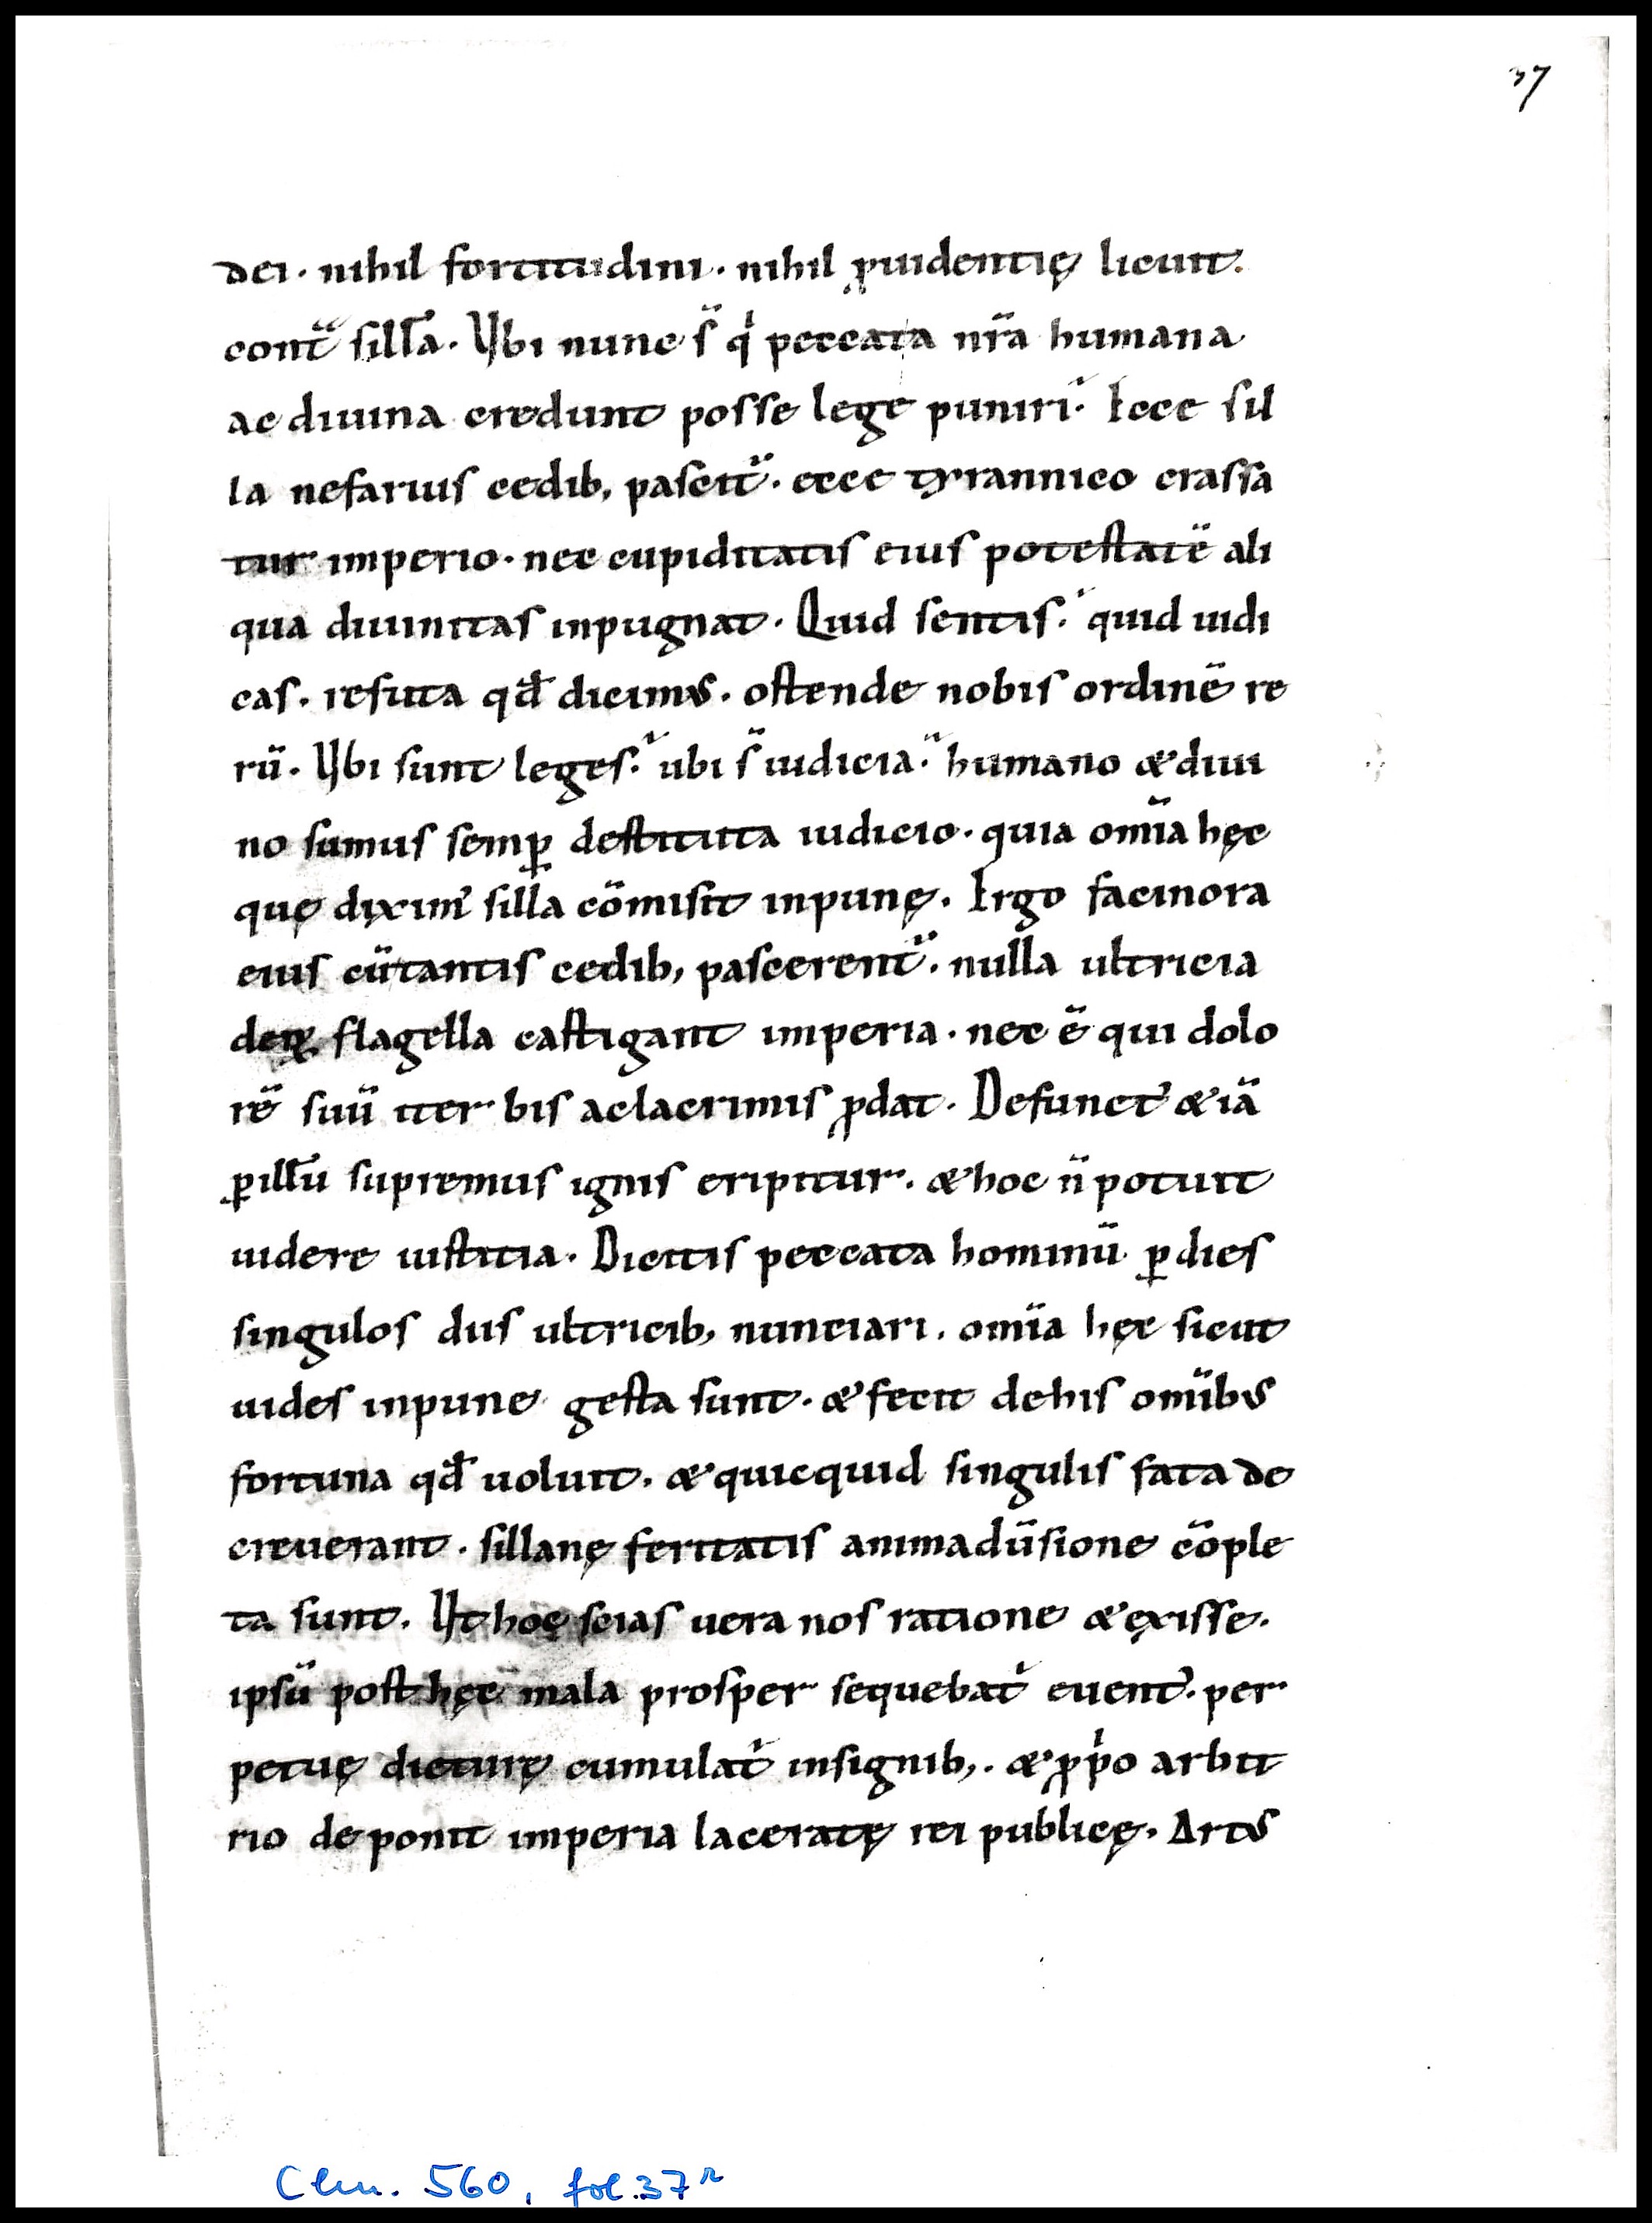 37
dei · nihil fortitudini · nihil ꝓuidentię licuit.
cont̃ silľa · Vbi nunc s̃ qͥ peccata nr̃a humana
ac diuina credunt posse lege puniri · Ecce sil
la nefarius cedib; pascit̃ · ecce tyrannico crassa
tur imperio · nec cupiditatis eius potestatē ali
qua diuinitas inpugnat · Quid sentis · quid iudi
cas · refuta qđ dicimus · ostende nobis ordinē re
rū · Vbi sunt leges · ubi s̃ iudicia · humano & diui
no sumus semꝑ destituta iudicio · quia om̃ia hęc
quę diximꝰ silla cōmisit inpunę · Ergo facinora
eius cūtantis cedib; pascerent̃ · nulla ultricia
deę flagella castigant imperia · nec ē qui dolo
rē suū iter bis ac lacrimis ꝓdat · Defunctꝰ & iā
ꝑ illū supremus ignis eripitur · & hoc ñ potuit
uidere iustitia · Dicitis peccata hominū ꝑ dies
singulos diis ultricib; nunciari · om̃ia hęc sicut
uides inpune gesta sunt · & fecit de his om̃ibus
fortuna qđ uoluit · & quicquid singulis fata de
creuerant · sillanę feritatis animadũsione cōple
ta sunt · Vt hoc scias uera nos ratione & ęxisse ·
ipsū post hęc mala prosper sequebat̉ euentꝰ · per
petuę dicturę cumulat̉ insignib; · & ꝓpͥo arbit
rio deponit imperia laceratę rei publicę · Artus
Clm. 560, fol. 37ʳ